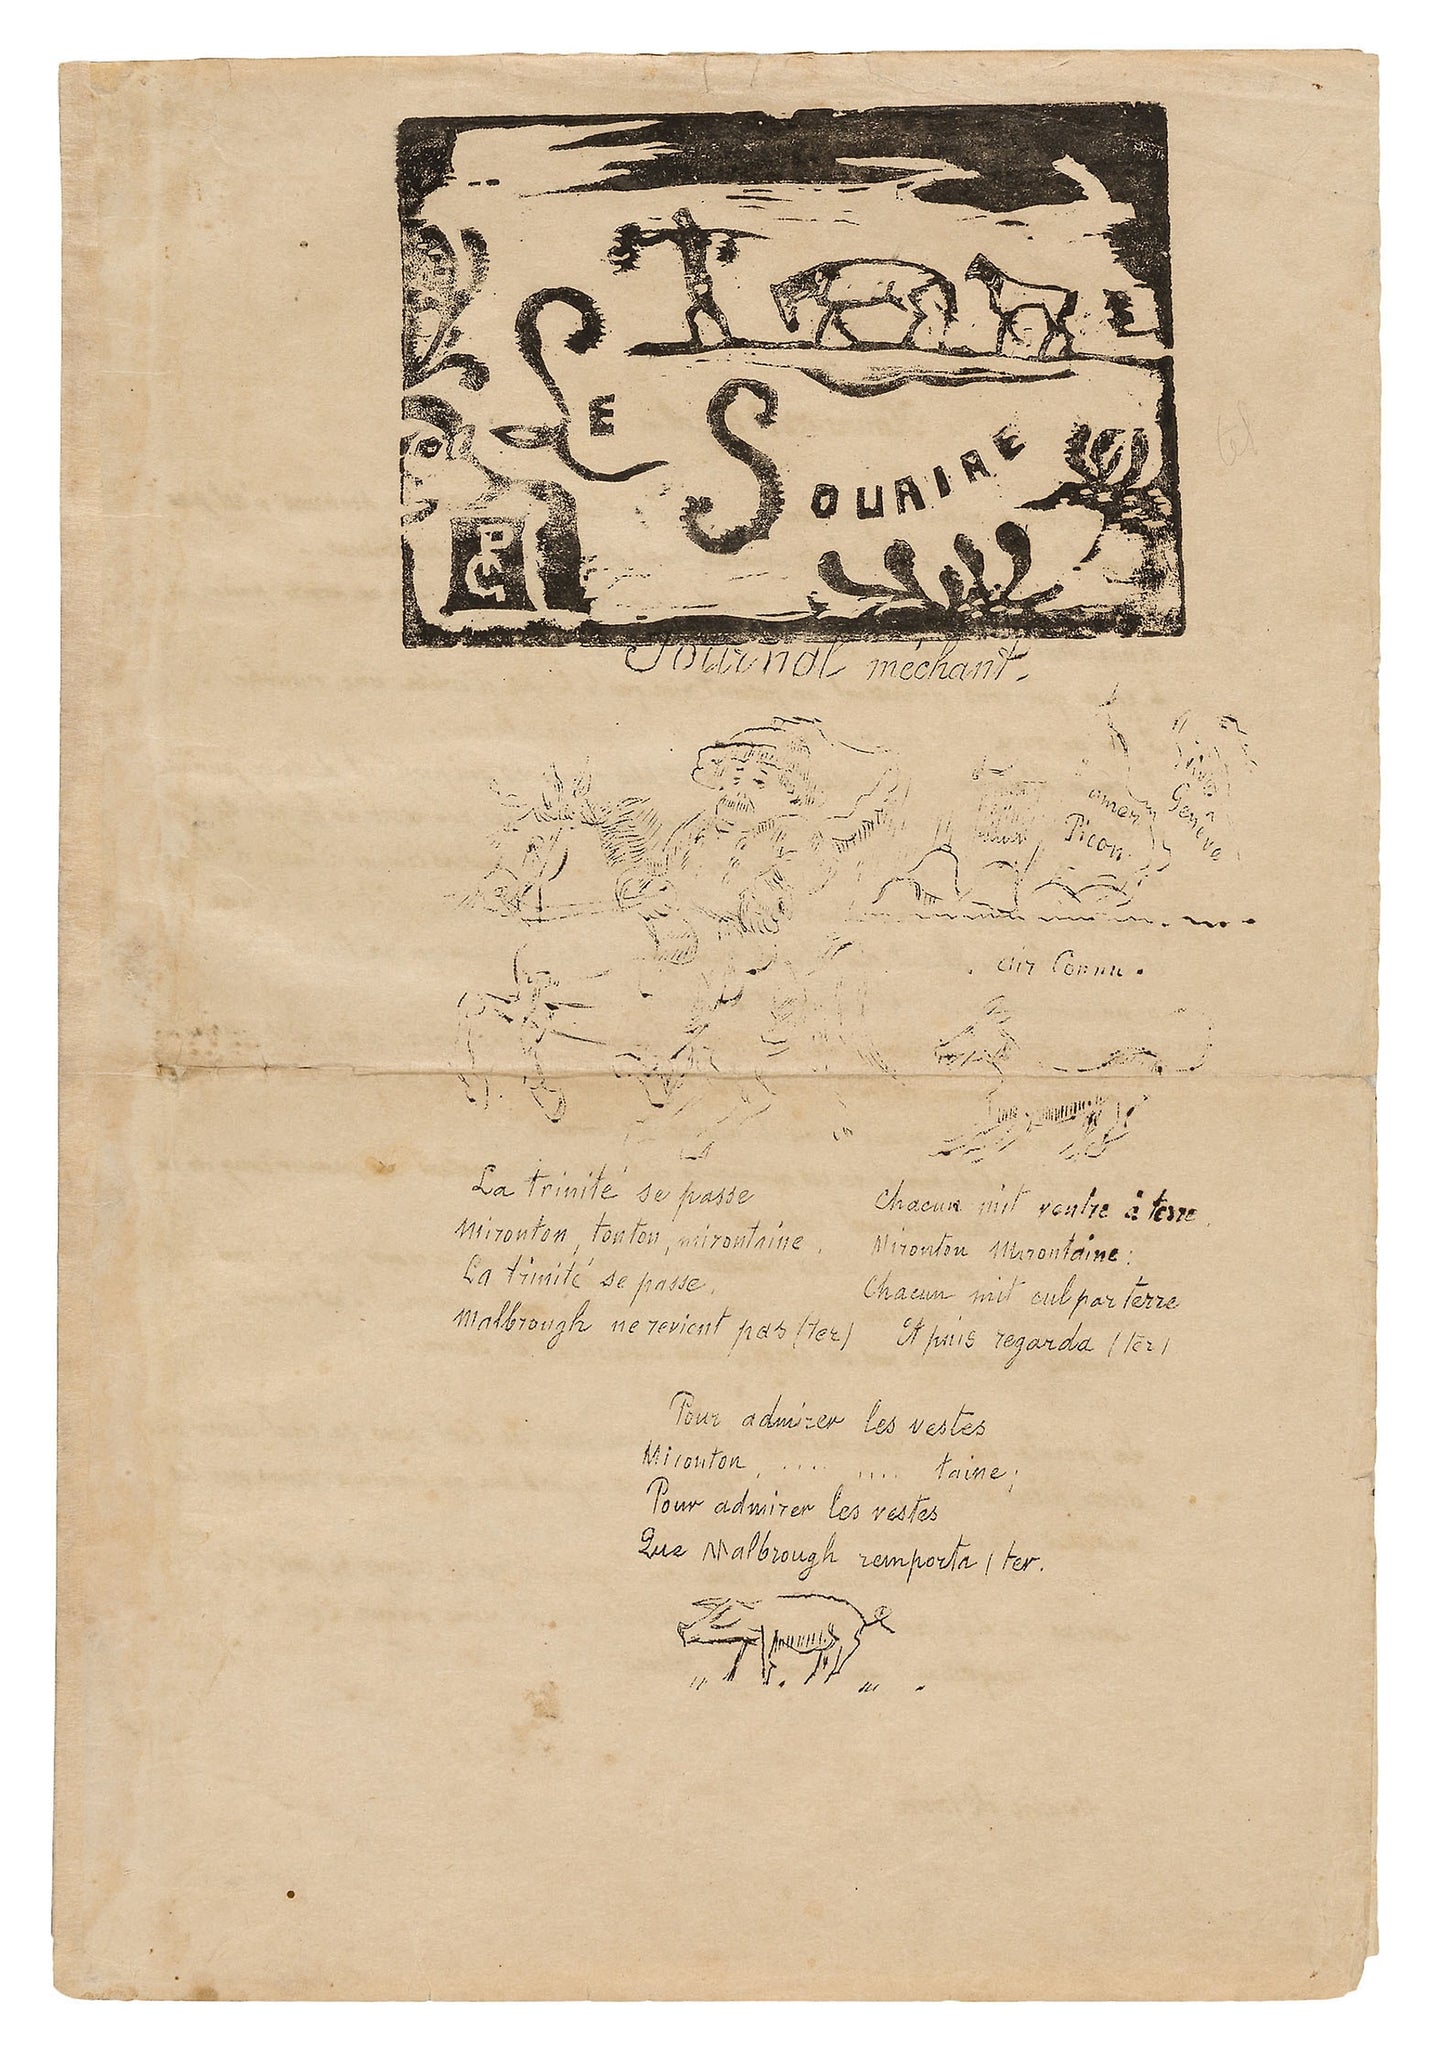 LE
SOURIRE
PGO
Journal méchant.
amer
Picon
Genève
Air Connu.
La trinité se passe
Mironton, tonton, mirontaine.
La trinité se passe.
Malbrough ne revient pas (ter)
Chacun mit ventre à terre.
Mironton Mirontaine:
Chacun mit cul par terre
Et puis regarda (ter)
Pour admirer les vestes
Mironton, .... .... taine;
Pour admirer les vestes
Que Malbrough remporta (ter.